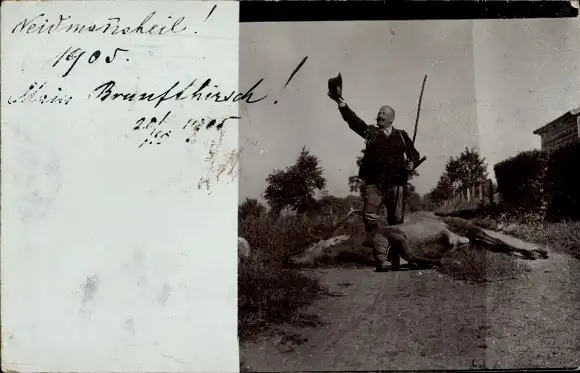 Weidmannsheil!
1905.
Mein Brunfthirsch!
1905